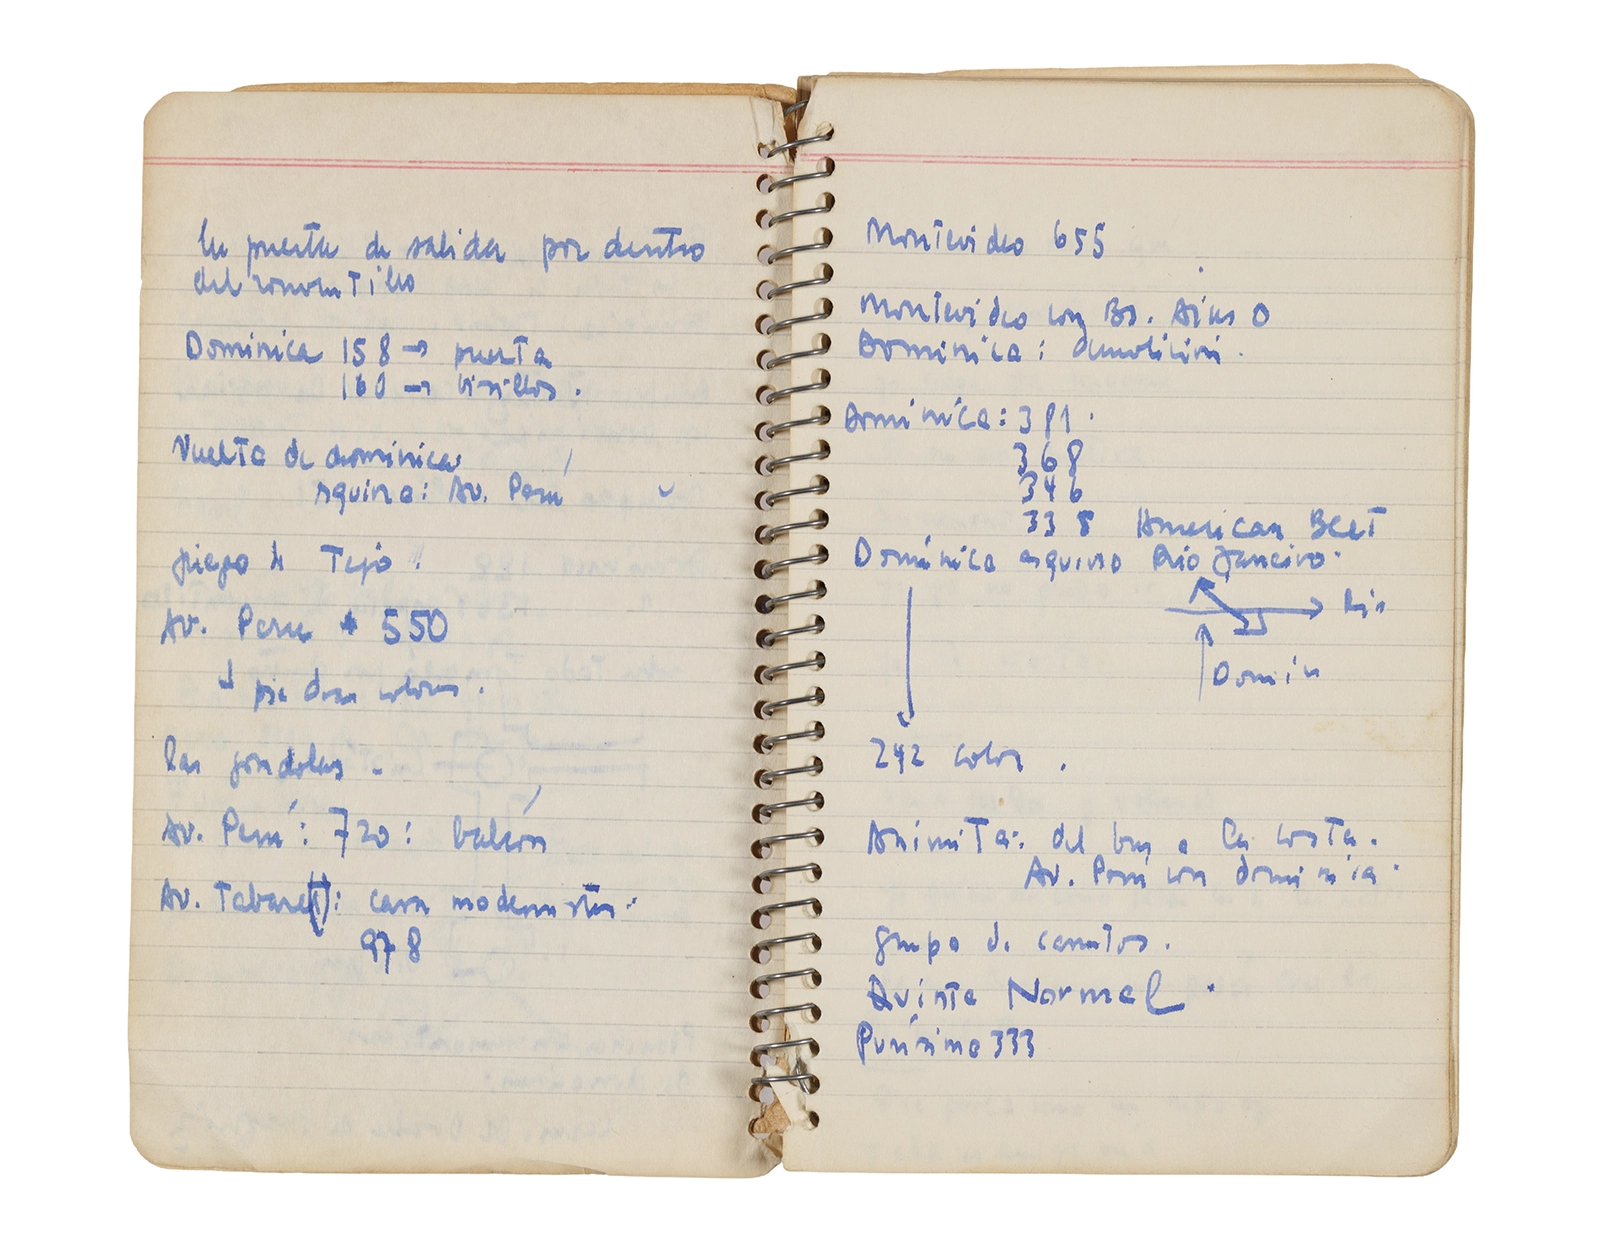 la puerta de salida por dentro
del conventillo
Dominica 158 → puerta
160 → visillos.
Vuelta de dominica
esquina: Av. Perú
juego de Tejo.
Av. Peru 550
↓ color.
las gondolas -
Av. Perú: 720: balcón
Av. Tabare(t): casa modernista.
978
Montevideo 655
Montevideo con Bs. Aires 0
Dominica: demolición.
Dominica: 381.
368
346
338 American Beet
Dominica esquina Rio Janeiro.
Rio
Domin
242 color.
Animita: del bus a la costa.
Av. Perú con dominica.
grupo de carretos.
Quinta Normal.
Purísima 333